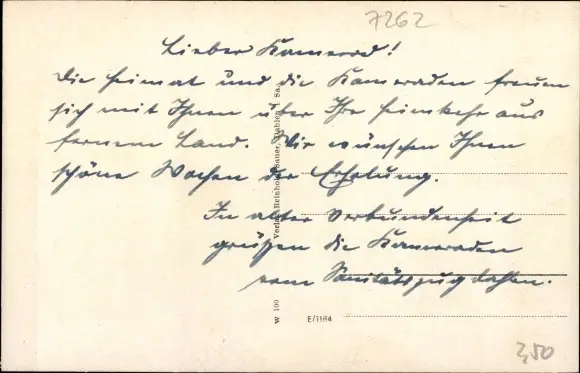 7262
Lieber Kamerad!
Die Heimat und die Kameraden freuen
sich mit Ihnen über Ihre Heimkehr aus
fernem Land. Wir wünschen Ihnen
schöne Wochen der Erholung.
In alter Verbundenheit
grüßen die Kameraden
vom Sanitätszug Dahlen.
Verlag Reinhold Sauer, Dahlen i. Sa.
W 100
E/1184
3,50